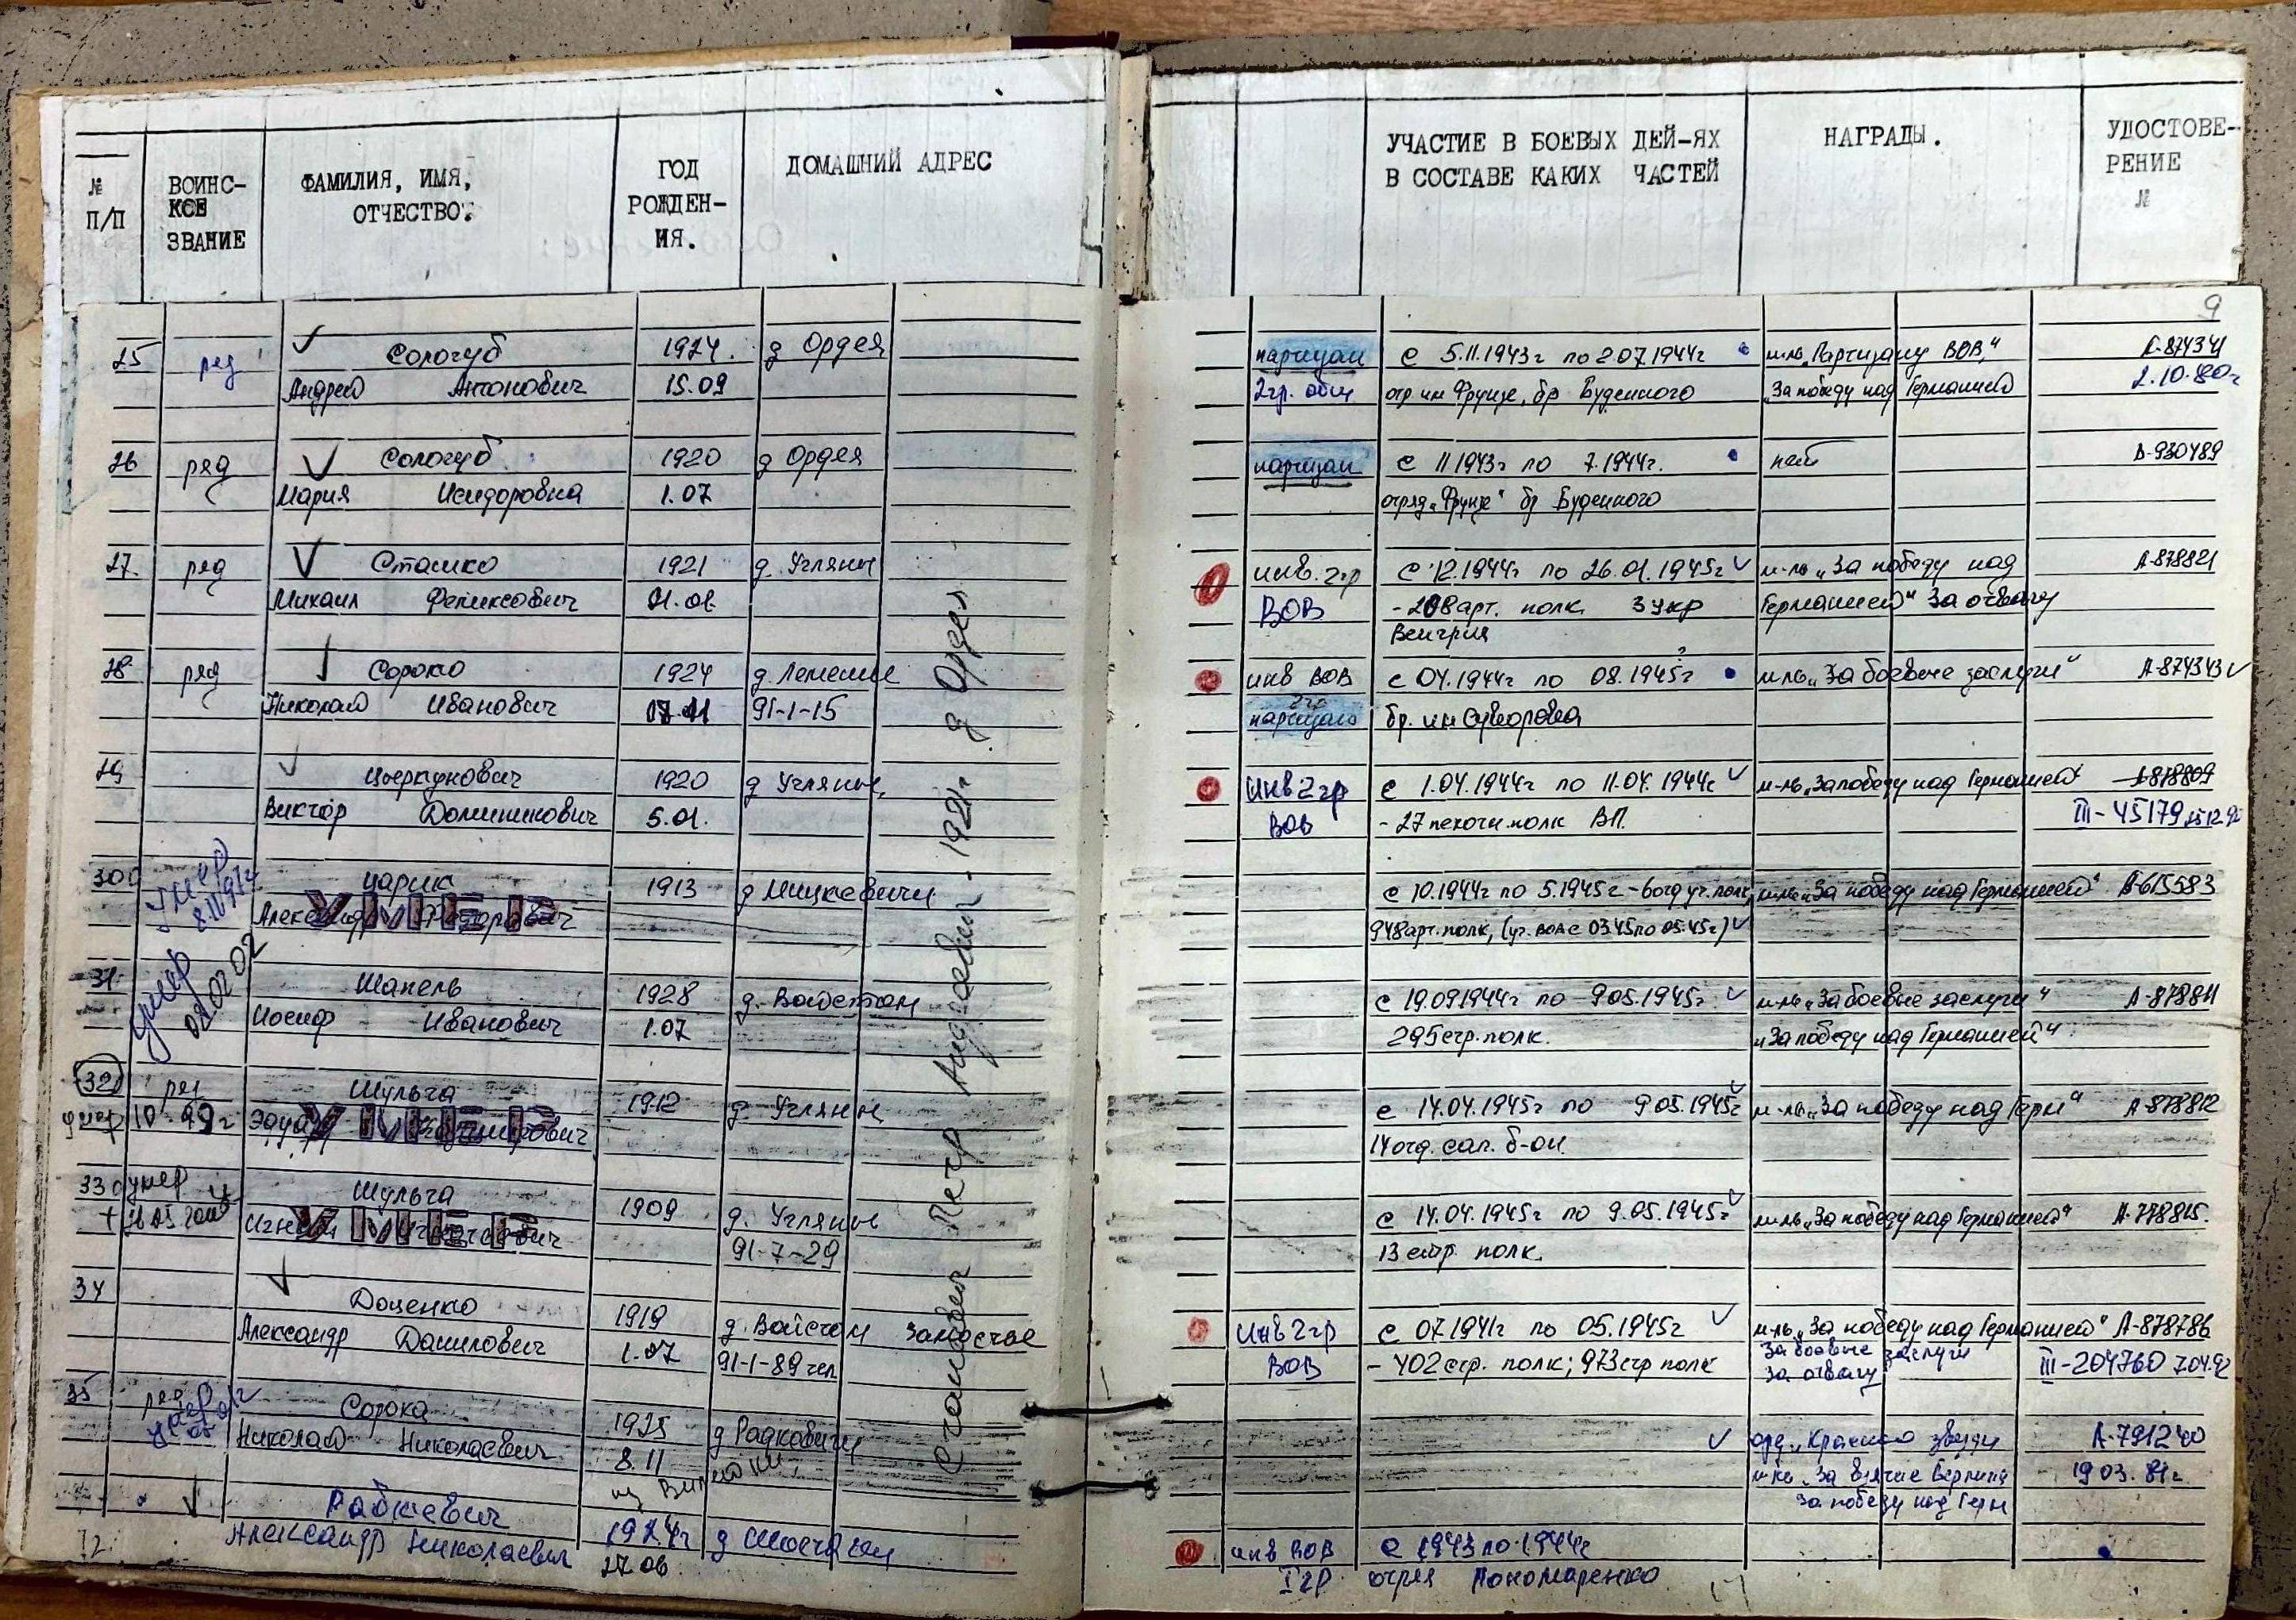 № П/П
ВОИНС-
КОЕ
ЗВАНИЕ
ФАМИЛИЯ, ИМЯ,
ОТЧЕСТВО.
ГОД
РОЖДЕН-
ИЯ.
ДОМАШНИЙ АДРЕС
УЧАСТИЕ В БОЕВЫХ ДЕЙ-ЯХ
В СОСТАВЕ КАКИХ ЧАСТЕЙ
НАГРАДЫ.
УДОСТОВЕ-
РЕНИЕ
№
9
25 ряд Сологуб 1924. д Ордея партизан с 5.11.1943г по 2.07.1944г м-ль „Партизану ВОВ" А-874341
Андрей Антонович 15.09 2гр. общ отр им Фрунзе, бр Буденного „За победу над Германией 2.10.80г
26 ряд Сологуб 1920 д Ордея партизан с 11.1943г по 7.1944г. нет Б-930489
Мария Исидоровна 1.07 отряд „Фрунзе" бр Буденного
27. ряд Сташко 1921 д. Угляны инв. 2гр с 12.1944г по 26.01.1945г м-ль „За победу над А-878821
Михаил Феликсович ВОВ -208 арт. полк 3 укр Германией" За отвагу
Венгрия
28 ряд Сороко 1924 д. Лемеши инв ВОВ с 04.1944г по 08.1945г м-ль „За боевые заслуги" А-874343
Николай Иванович 91-1-15 2гр партизан бр. им Суворова
29 Цверкунович 1920 д Угляны, Инв 2гр с 1.04.1944г по 11.04.1944г м-ль „За победу над Германией" А-878809
Виктор Доминикович 5.01. ВОВ - 27 пехотн. полк ВП. III-45179
30 умер Царик 1913 д Мицкевичи с 10.1944г по 5.1945г - 6 отд уч. полк, м-ль „За победу над Германией" Б-615583
УМЕР
948 арт. полк, (уч. ВОВ с 03.45 по 05.45г)
31 умер 02.02 Шапель 1928 д. Войстом с 19.09.1944г по 9.05.1945г м-ль „За боевые заслуги" А-878811
Иосиф Иванович 1.07 295 стр. полк. „За победу над Германией"
32 ряд Шульга 1912 д. Угляны с 14.04.1945г по 9.05.1945г м-ль „За победу над Герм" А-878812
умер 10.99г УМЕР 14 отд. сап. б-он
33 умер Шульга 1909 д. Угляны с 14.04.1945г по 9.05.1945г м-ль „За победу над Германией" А-778815.
УМЕР 91-7-29 13 стр. полк
34 Доценко 1919 д. Войстом Замостье Инв 2гр с 07.1941г по 05.1945г м-ль „За победу над Германией" А-878786
Александр Данилович 1.07 91-1-89 чел ВОВ - 402 стр. полк; 973 стр полк За боевые заслуги III-204760 7.04.92
За отвагу
35 ряд Сорока 1925 д Радковичи орд. „Красной звезды А-791240
умер Николай Николаевич 8.11 м-ль „За взятие Берлина 19 03. 81г.
За победу над Герм
Рабкевич 1924г инв ВОВ с 1943 по 1944г
Александр Николаевич 27.06 Iгр отряд Пономаренко
12
Степанович Петр Андреевич - 1921г. д Ордея